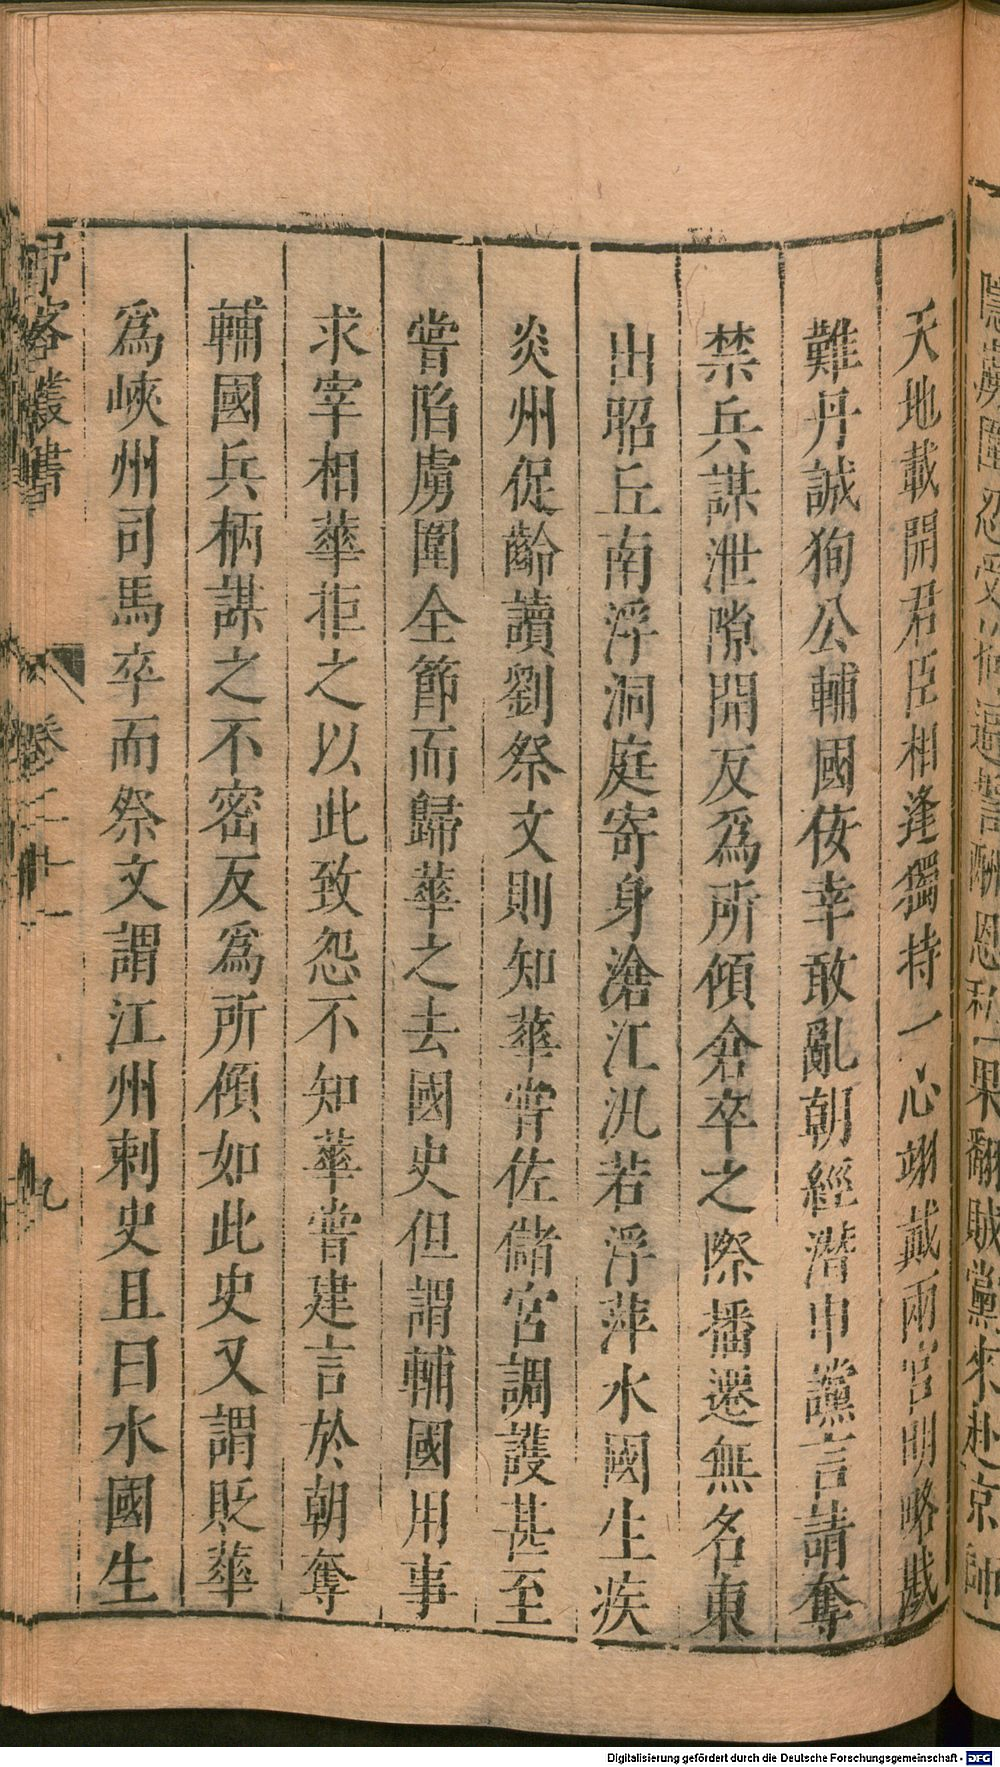 天地載開君臣相逢獨持一心翊戴兩宫明略戡
難丹誠狥公輔國侫幸敢亂朝經潛申讜言請奪
禁兵謀泄隙開反爲所傾倉卒之際播遷無名東
出昭丘南浮洞庭寄身滄江汎若浮萍水國生疾
炎州促齡讀劉祭文則知華甞佐儲宮調護甚至
甞陷虜圍全節而歸華之去國史但謂輔國用事
求宰相華拒之以此致怨不知華甞建言於朝奪
輔國兵柄謀之不密反爲所傾如此史又謂貶華
爲峽州司馬卒而祭文謂江州刺史且曰水國生
野客叢書 卷二十一 九
Digitalisierung gefördert durch die Deutsche Forschungsgemeinschaft - DFG